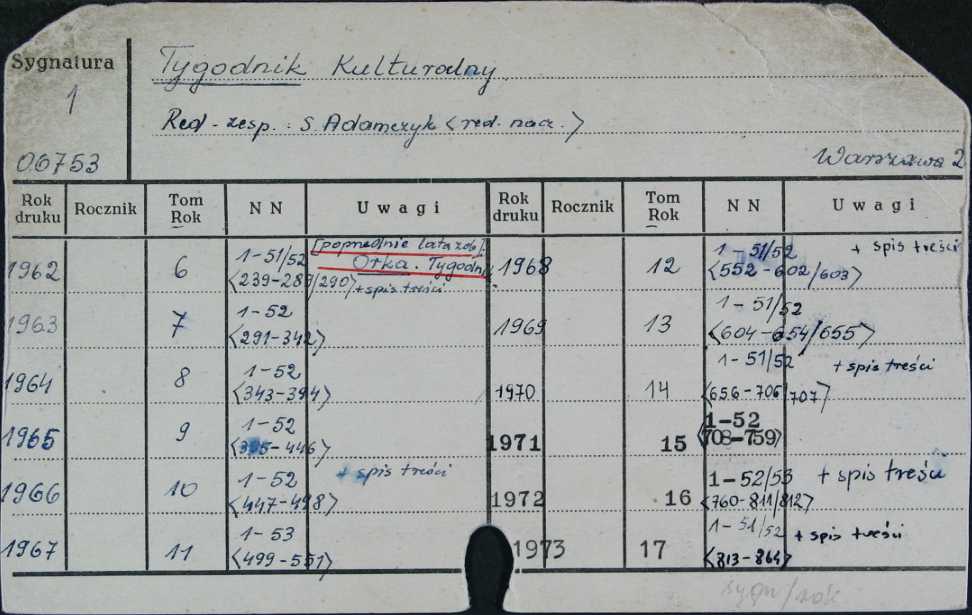 Sygnatura
1
06753
Tygodnik Kulturalny
Red. zesp. : S. Adamczyk <red. nacz.>
Warszawa 2
Rok druku Rocznik Tom Rok N N Uwagi Rok druku Rocznik Tom Rok N N Uwagi
1962 6 1-51/52 <239-289/290> [poprzednie lata zob. Orka. Tygodn. + spis treści
1963 7 1-52 <291-342>
1964 8 1-52 <343-394>
1965 9 1-52 <395-446>
1966 10 1-52 <447-498> + spis treści
1967 11 1-53 <499-551>
1968 12 1-51/52 <552-602/603> + spis treści
1969 13 1-51/52 <604-654/655>
1970 14 1-51/52 <656-706/707> + spis treści
1971 15 1-52 <708-759>
1972 16 1-52/53 <760-811/812> + spis treści
1973 17 1-51/52 <813-864> + spis treści
sygn/rok